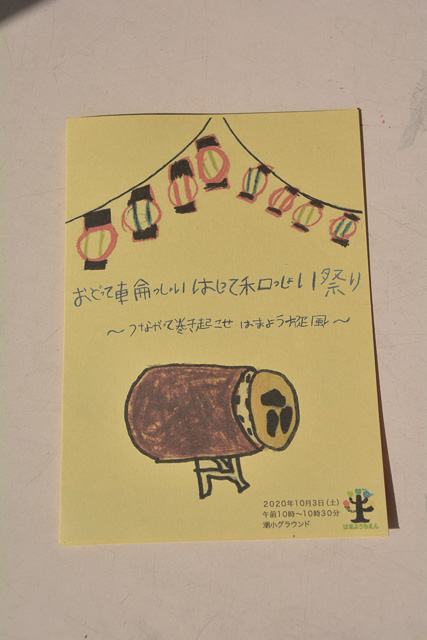 おどって車輪っしょい はじけて和ロっしょい祭り
～つなげて巻き起こせ はまようち旋風～
2020年10月3日(土)
午前10時～10時30分
潮小グラウンド
はまようちえん